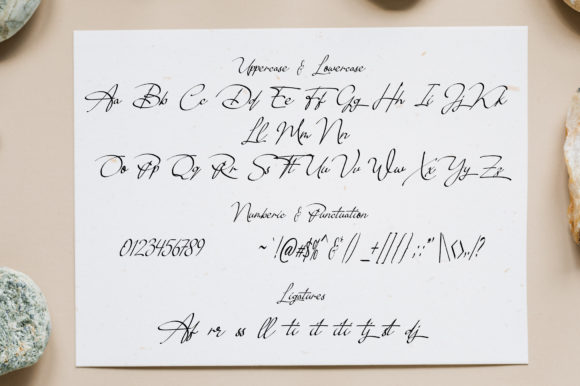 Uppercase & Lowercase
Aa Bb Cc Dd Ee Ff Gg Hh Ii Jj Kk
Ll Mm Nn
Oo Pp Qq Rr Ss Tt Uu Vv Ww Xx Yy Zz
Numberic & Punctuation
0123456789 ~`!@#$%^&*()_+[]{};:"'|\<>,./?
Ligatures
Af rr ss ll ti it iti tj st dj